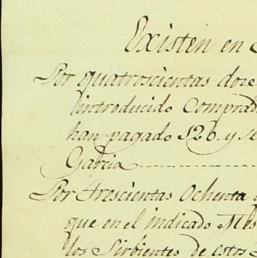 Existen en
Por quatroscientas doze
introducido Comprad
han pagado 126. y se
Garcia
Por trescientas Ochenta
que en el indicado Mes
los Sirbientes de estos